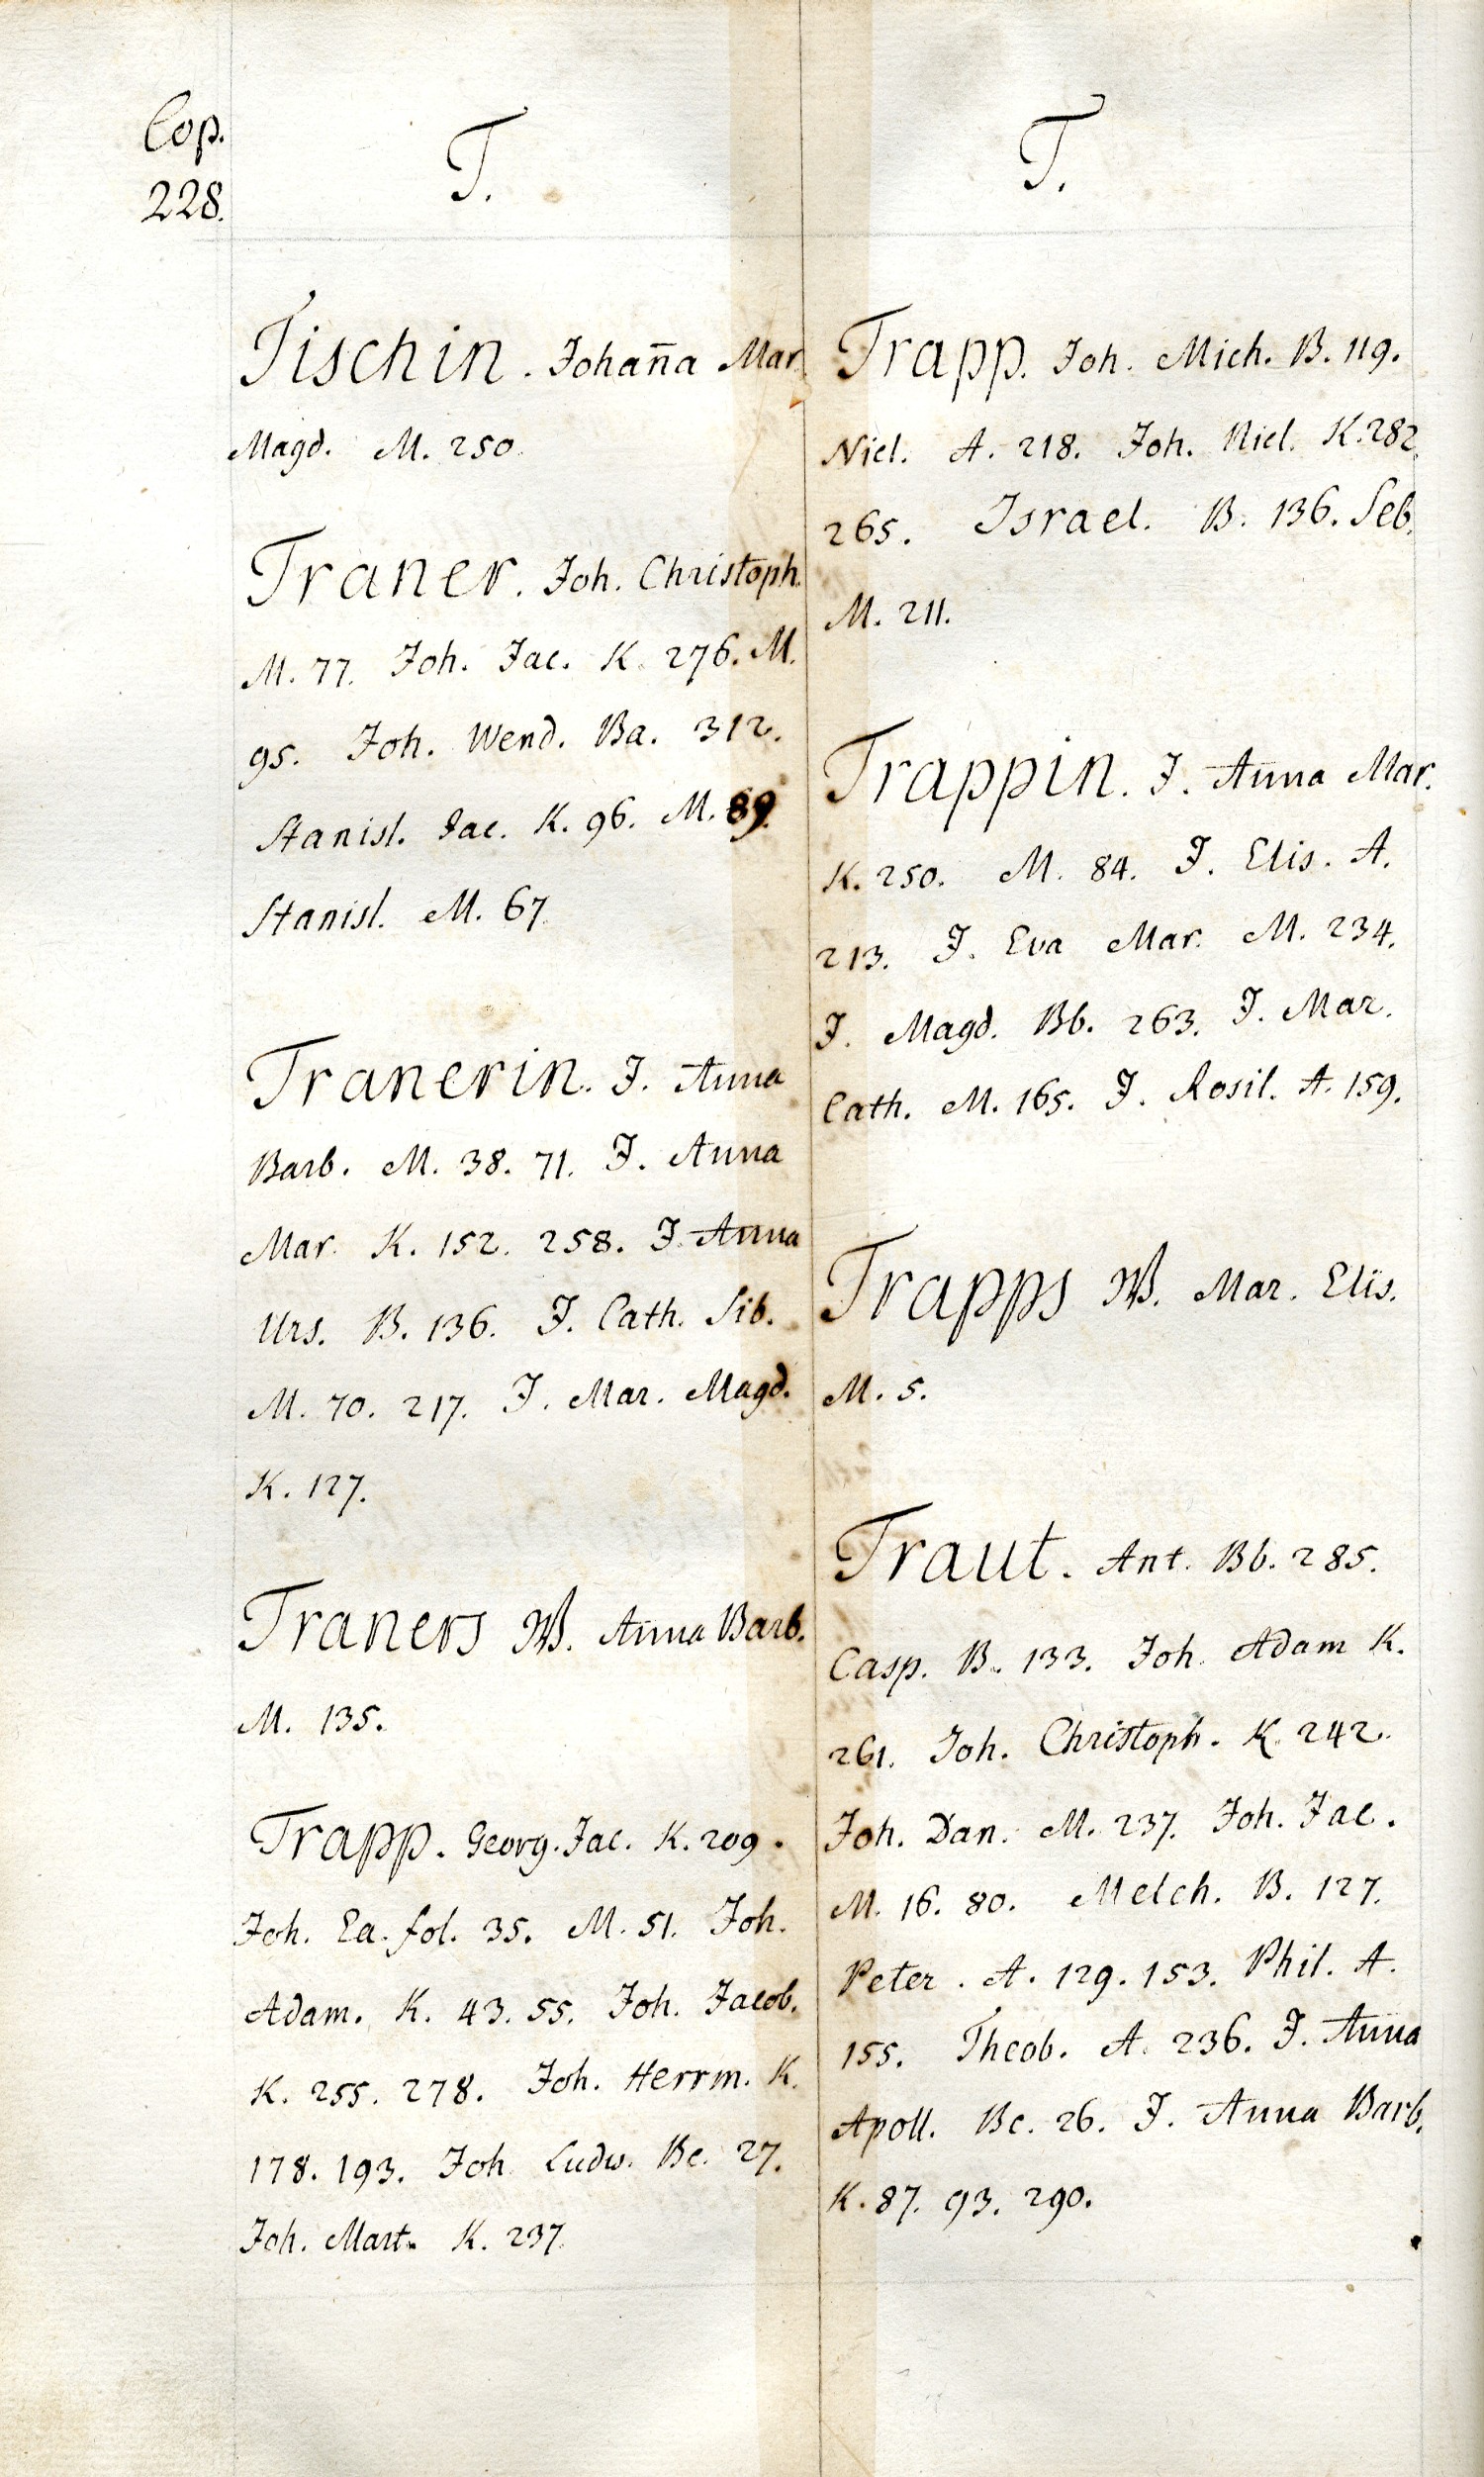 Cop.
228.
T.
Tischin. Johan̄a Mar.
Magd. M. 250.
Traner. Joh. Christoph.
M. 77. Joh. Jac. K. 276. M.
95. Joh. Wend. Ba. 312.
Stanisl. Jac. K. 96. M. 89.
Stanisl. M. 67.
Tranerin. J. Anna
Barb. M. 38. 71. J. Anna
Mar. K. 152. 258. J. Anna
Urs. B. 136. J. Cath. Sib.
M. 70. 217. J. Mar. Magd.
K. 127.
Traners W. Anna Barb.
M. 135.
Trapp. Georg. Jac. K. 209.
Joh. Ea. fol. 35. M. 51. Joh.
Adam. K. 43. 55. Joh. Jacob.
K. 255. 278. Joh. Herrm. K.
178. 193. Joh. Ludw. Bc. 27.
Joh. Mart. K. 237.
T.
Trapp. Joh. Mich. B. 119.
Nicl. A. 218. Joh. Nicl. K. 282.
265. Israel. B. 136. Seb.
M. 211.
Trappin. J. Anna Mar.
K. 250. M. 84. J. Elis. A.
213. J. Eva Mar. M. 234.
J. Magd. Bb. 263. J. Mar.
Cath. M. 165. J. Rosil. A. 159.
Trapps W. Mar. Elis.
M. 5.
Traut. Ant. Bb. 285.
Casp. B. 133. Joh. Adam K.
261. Joh. Christoph. K. 242.
Joh. Dan. M. 237. Joh. Jac.
M. 16. 80. Melch. B. 127.
Peter. A. 129. 153. Phil. A.
155. Theob. A. 236. J. Anna
Apoll. Bc. 26. J. Anna Barb.
K. 87. 93. 290.